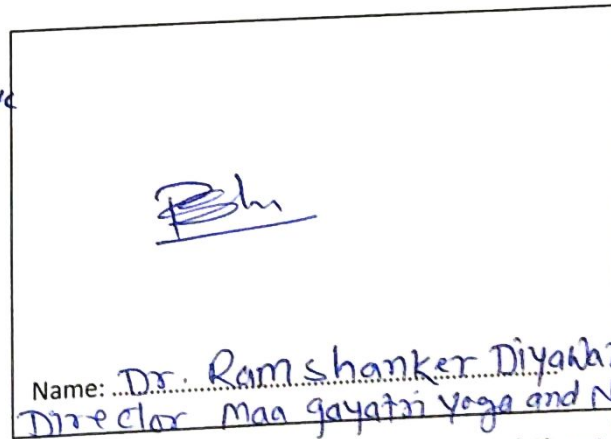 Name: Dr. Ramshanker
Director Maa gayatri yoga and